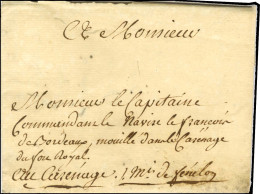 A Monsieur
Monsieur le Capitaine
Commandant le Navire le francois
de Bordeaux, mouille dans le Carenage
du fort Royal.
Au Carenage. Mr. de fenelon